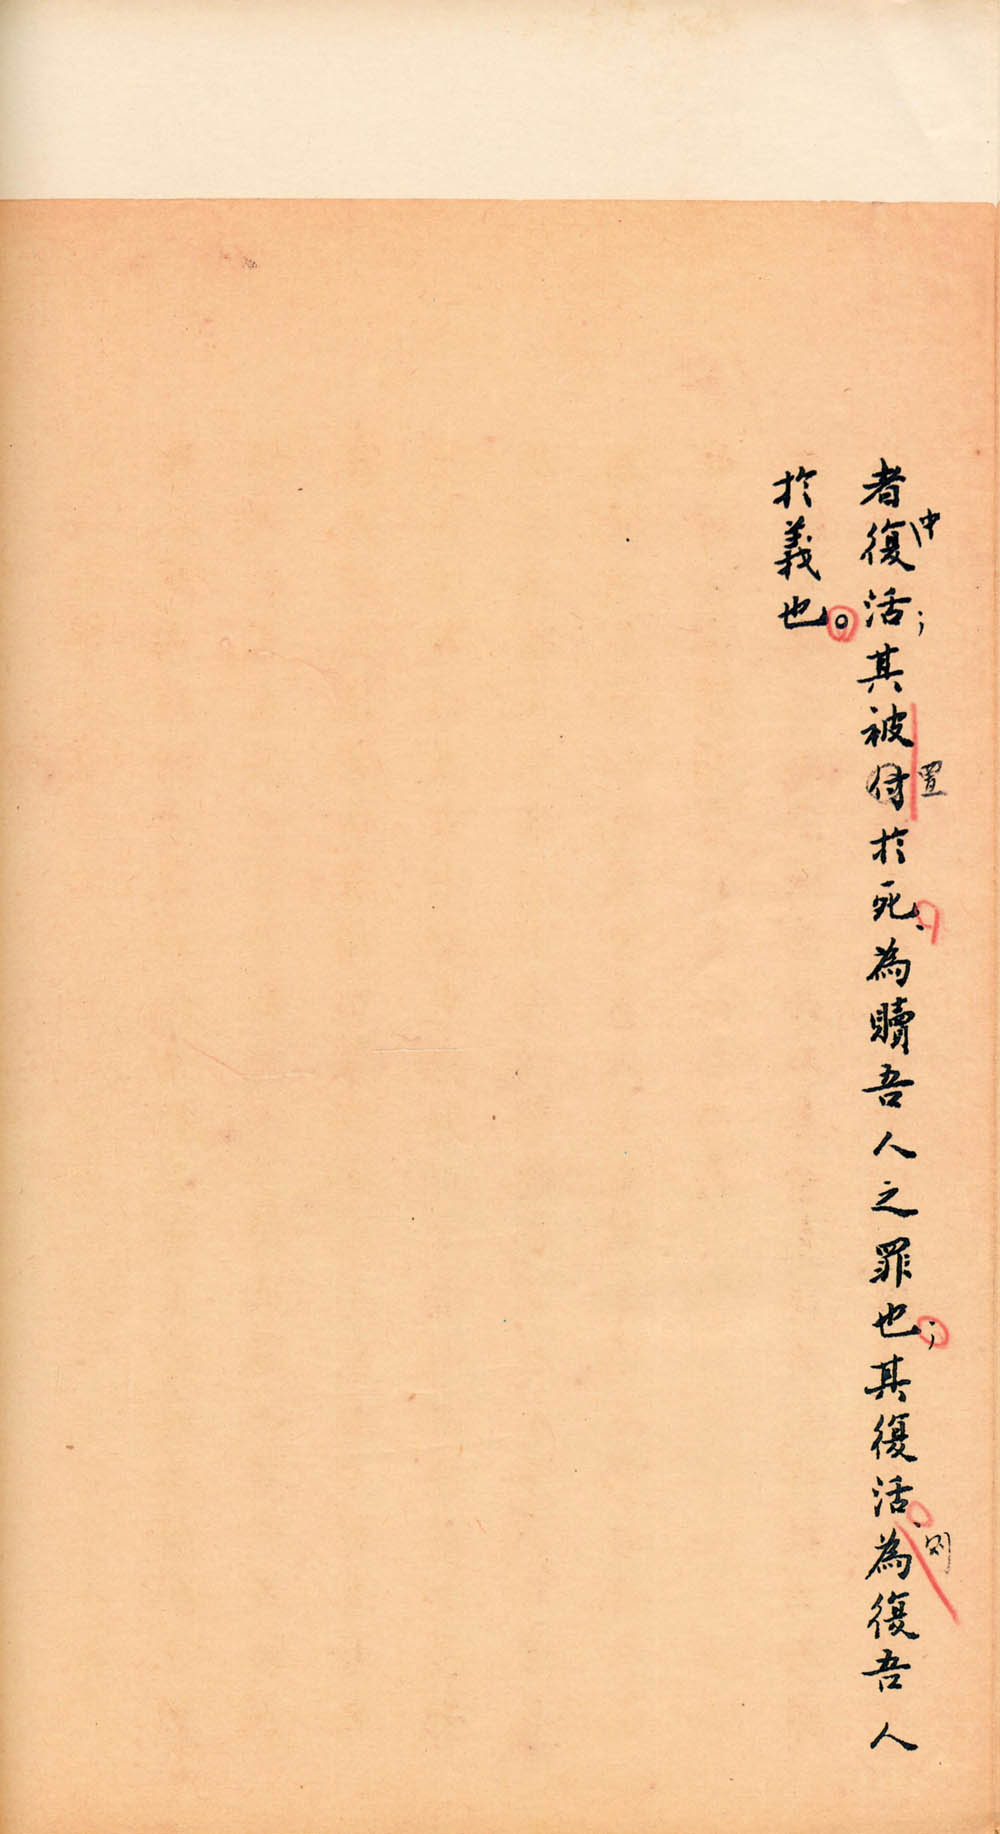 者中復活；其被付置於死、為贖吾人之罪也；其復活、則為復吾人
於義也。